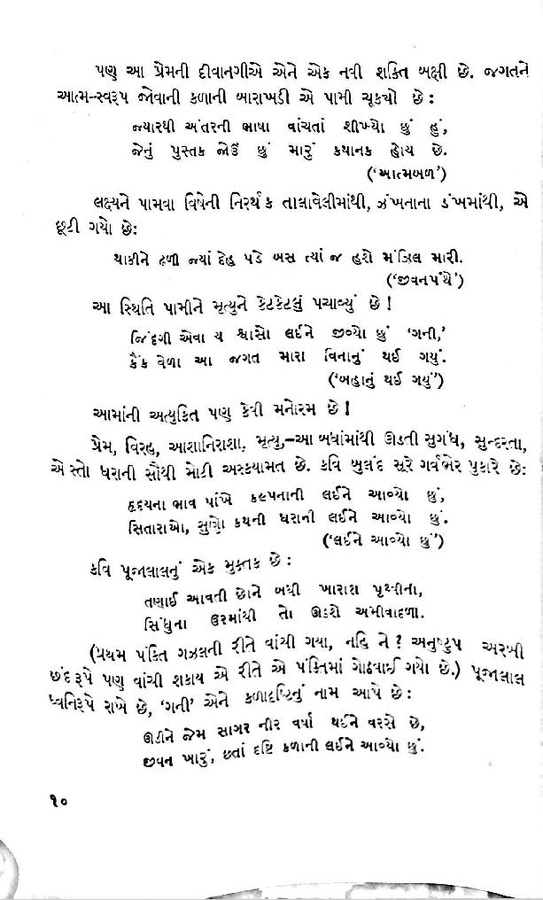 પણ આ પ્રેમની દીવાનગીએ એને એક નવી શક્તિ બક્ષી છે. જગતને
આત્મ-સ્વરૂપ જોવાની કળાની બારાખડી એ પામી ચૂકયો છે :
જ્યારથી અંતરની ભાષા વાંચતાં શીખ્યો છું હું,
જેનું પુસ્તક જોઉં છું મારું કથાનક હોય છે.
('આત્મબળ')
લક્ષ્યને પામવા વિષેની નિરર્થક તાલાવેલીમાંથી, ઝંખનાના ડંખમાંથી, એ
છૂટી ગયો છે:
થાકીને ઢળી જ્યાં દેહ પડે બસ ત્યાં જ હશે મંઝિલ મારી.
('જીવનપંથે')
આ સ્થિતિ પામીને મૃત્યુને કેટકેટલું પચાવ્યું છે !
જિંદગી એવા ય શ્વાસો લઈને જીવ્યો છું 'ગની,'
કૈંક વેળા આ જગત મારા વિનાનું થઈ ગયું.
('બહાનું થઈ ગયું')
આમાંની અત્યુકિત પણ કેવી મનોરમ છે !
પ્રેમ, વિરહ, આશાનિરાશા, મૃત્યુ,-આ બધાંમાંથી ઊઠતી સુગંધ, સુન્દરતા,
એ સ્તો ધરાની સૌથી મોટી અસ્કયામત છે. કવિ બુલંદ સૂરે ગર્વભેર પુકારે છે:
હૃદયના ભાવ પાંખે કલ્પનાની લઈને આવ્યો છું,
સિતારાઓ, સુણો કથની ધરાની લઈને આવ્યો છું.
('લઈને આવ્યો છું')
કવિ પૂજાલાલનું એક મુક્તક છે :
તણાઈ આવતી છોને બધી ખારાશ પૃથ્વીના,
સિંધુના ઉરમાંથી તો ઊઠશે અમીવાદળા.
(પ્રથમ પંક્તિ ગઝલની રીતે વાંચી ગયા, નહિ ને ? અનુષ્ટુપ અરબી
છંદરૂપે પણ વાંચી શકાય એ રીતે એ પંક્તિમાં ગોઠવાઈ ગયો છે.) પૂજાલાલ
ધ્વનિરૂપે રાખે છે, 'ગની' એને કળાદૃષ્ટિનું નામ આપે છે :
ઊડીને જેમ સાગર નીર વર્ષા થઈને વરસે છે,
જીવન ખારું, છતાં દષ્ટિ કળાની લઈને આવ્યો છું.
૧૦